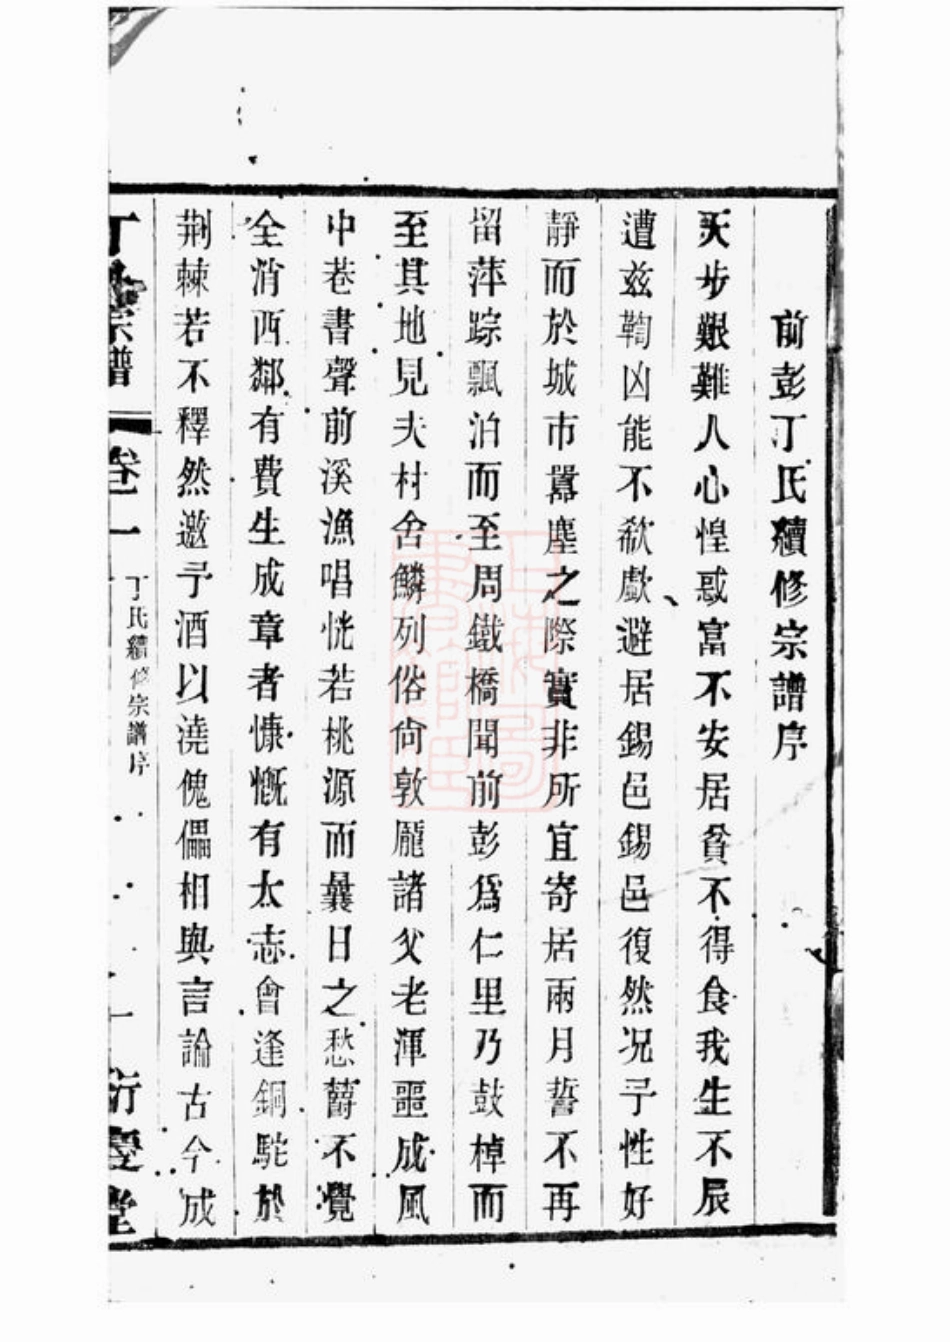 前彭丁氏續修宗譜序
天步艱難人心惶惑富不安居貧不得食我生不辰
遭兹鞫凶能不欷歔避居錫邑錫邑復然况予性好
靜而於城市囂塵之際實非所宜寄居兩月誓不再
留萍踪飄泊而至周鐵橋聞前彭爲仁里乃鼓棹而
至其地見夫村舍鱗列俗尙敦龐諸父老渾噩成風
中巷書聲前溪漁唱恍若桃源而曩日之愁欝不覺
全消西鄰有費生成章者慷慨有太志會逢銅駝於
荆棘若不釋然邀予酒以澆傀儡相與言論古今成
丁氏宗譜 卷一 丁氏續修宗譜序 一 衍慶堂
上海圖書館藏